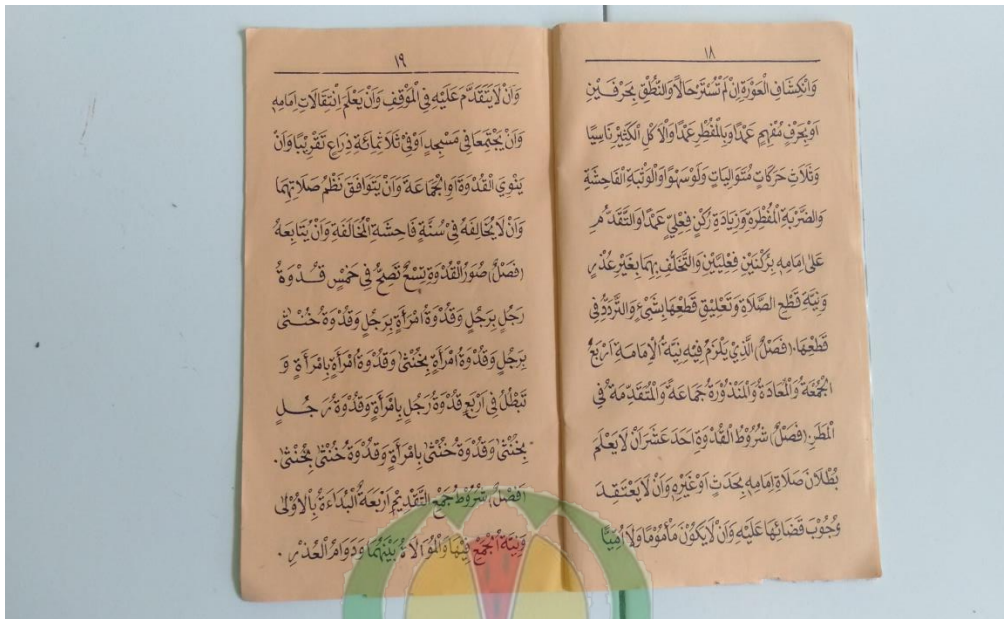 ١٨
وَانْكِشَافُ الْعَوْرَةِ اِنْ لَمْ تُسْتَرْ حَالًا وَالنُّطْقُ بِحَرْفَيْنِ
اَوْ بِحَرْفٍ مُفْهِمٍ عَمْدًا وَبِالْمُفْطِرِ عَمْدًا وَالْاَكْلِ الْكَثِيْرِ نَاسِيًا
وَثَلَاثِ حَرَكَاتٍ مُتَوَالِيَاتٍ وَلَوْ سَهْوًا وَالْوَثْبَةِ الْفَاحِشَةِ
وَالضَّرْبَةِ الْمُفْطِرَةِ وَزِيَادَةِ رُكْنٍ فِعْلِيٍّ عَمْدًا وَالتَّقَدُّمِ
عَلٰى اِمَامِهِ بِرُكْنَيْنِ فِعْلِيَّيْنِ وَالتَّخَلُّفِ بِهِمَا بِغَيْرِ عُذْرٍ
وَنِيَّةِ قَطْعِ الصَّلَاةِ وَتَعْلِيْقِ قَطْعِهَا بِشَيْءٍ وَالتَّرَدُّدِ فِى
قَطْعِهَا. (فَصْلٌ) الَّذِيْ يَلْزَمُ فِيْهِ نِيَّةُ الْاِمَامَةِ اَرْبَعٌ
الْجُمُعَةُ وَالْمُعَادَةُ وَالْمَنْذُوْرَةُ جَمَاعَةً وَالْمُتَقَدِّمَةُ فِى
الْمَطَرِ. (فَصْلٌ) شُرُوْطُ الْقُدْوَةِ اَحَدَ عَشَرَ اَنْ لَا يَعْلَمَ
بُطْلَانَ صَلَاةِ اِمَامِهِ بِحَدَثٍ اَوْ غَيْرِهِ وَاَنْ لَا يَعْتَقِدَ
وُجُوْبَ قَضَائِهَا عَلَيْهِ وَاَنْ لَا يَكُوْنَ مَأْمُوْمًا وَلَا اُمِّيًّا
١٩
وَاَنْ لَا يَتَقَدَّمَ عَلَيْهِ فِى الْمَوْقِفِ وَاَنْ يَعْلَمَ انْتِقَالَاتِ اِمَامِهِ
وَاَنْ يَجْتَمِعَا فِى مَسْجِدٍ اَوْ فِيْ ثَلَاثِمِائَةِ ذِرَاعٍ تَقْرِيْبًا وَاَنْ
يَنْوِيَ الْقُدْوَةَ اَوِ الْجَمَاعَةَ وَاَنْ يَتَوَافَقَ نَظْمُ صَلَاتِهِمَا
وَاَنْ لَا يُخَالِفَهُ فِيْ سُنَّةٍ فَاحِشَةِ الْمُخَالَفَةِ وَاَنْ يُتَابِعَهُ
(فَصْلٌ) صُوَرُ الْقُدْوَةِ تِسْعٌ تَصِحُّ فِيْ خَمْسٍ قُدْوَةُ
رَجُلٍ بِرَجُلٍ وَقُدْوَةُ امْرَأَةٍ بِرَجُلٍ وَقُدْوَةُ خُنْثٰى
بِرَجُلٍ وَقُدْوَةُ امْرَأَةٍ بِخُنْثٰى وَقُدْوَةُ امْرَأَةٍ بِامْرَأَةٍ وَ
تَبْطُلُ فِيْ اَرْبَعٍ قُدْوَةُ رَجُلٍ بِامْرَأَةٍ وَقُدْوَةُ رَجُلٍ
بِخُنْثٰى وَقُدْوَةُ خُنْثٰى بِامْرَأَةٍ وَقُدْوَةُ خُنْثٰى بِخُنْثٰى.
(فَصْلٌ) شُرُوْطُ جَمْعِ التَّقْدِيْمِ اَرْبَعَةٌ الْبُدَاءَةُ بِالْاُوْلٰى
وَنِيَّةُ الْجَمْعِ فِيْهَا وَالْمُوَالَاةُ بَيْنَهُمَا وَدَوَامُ الْعُذْرِ.